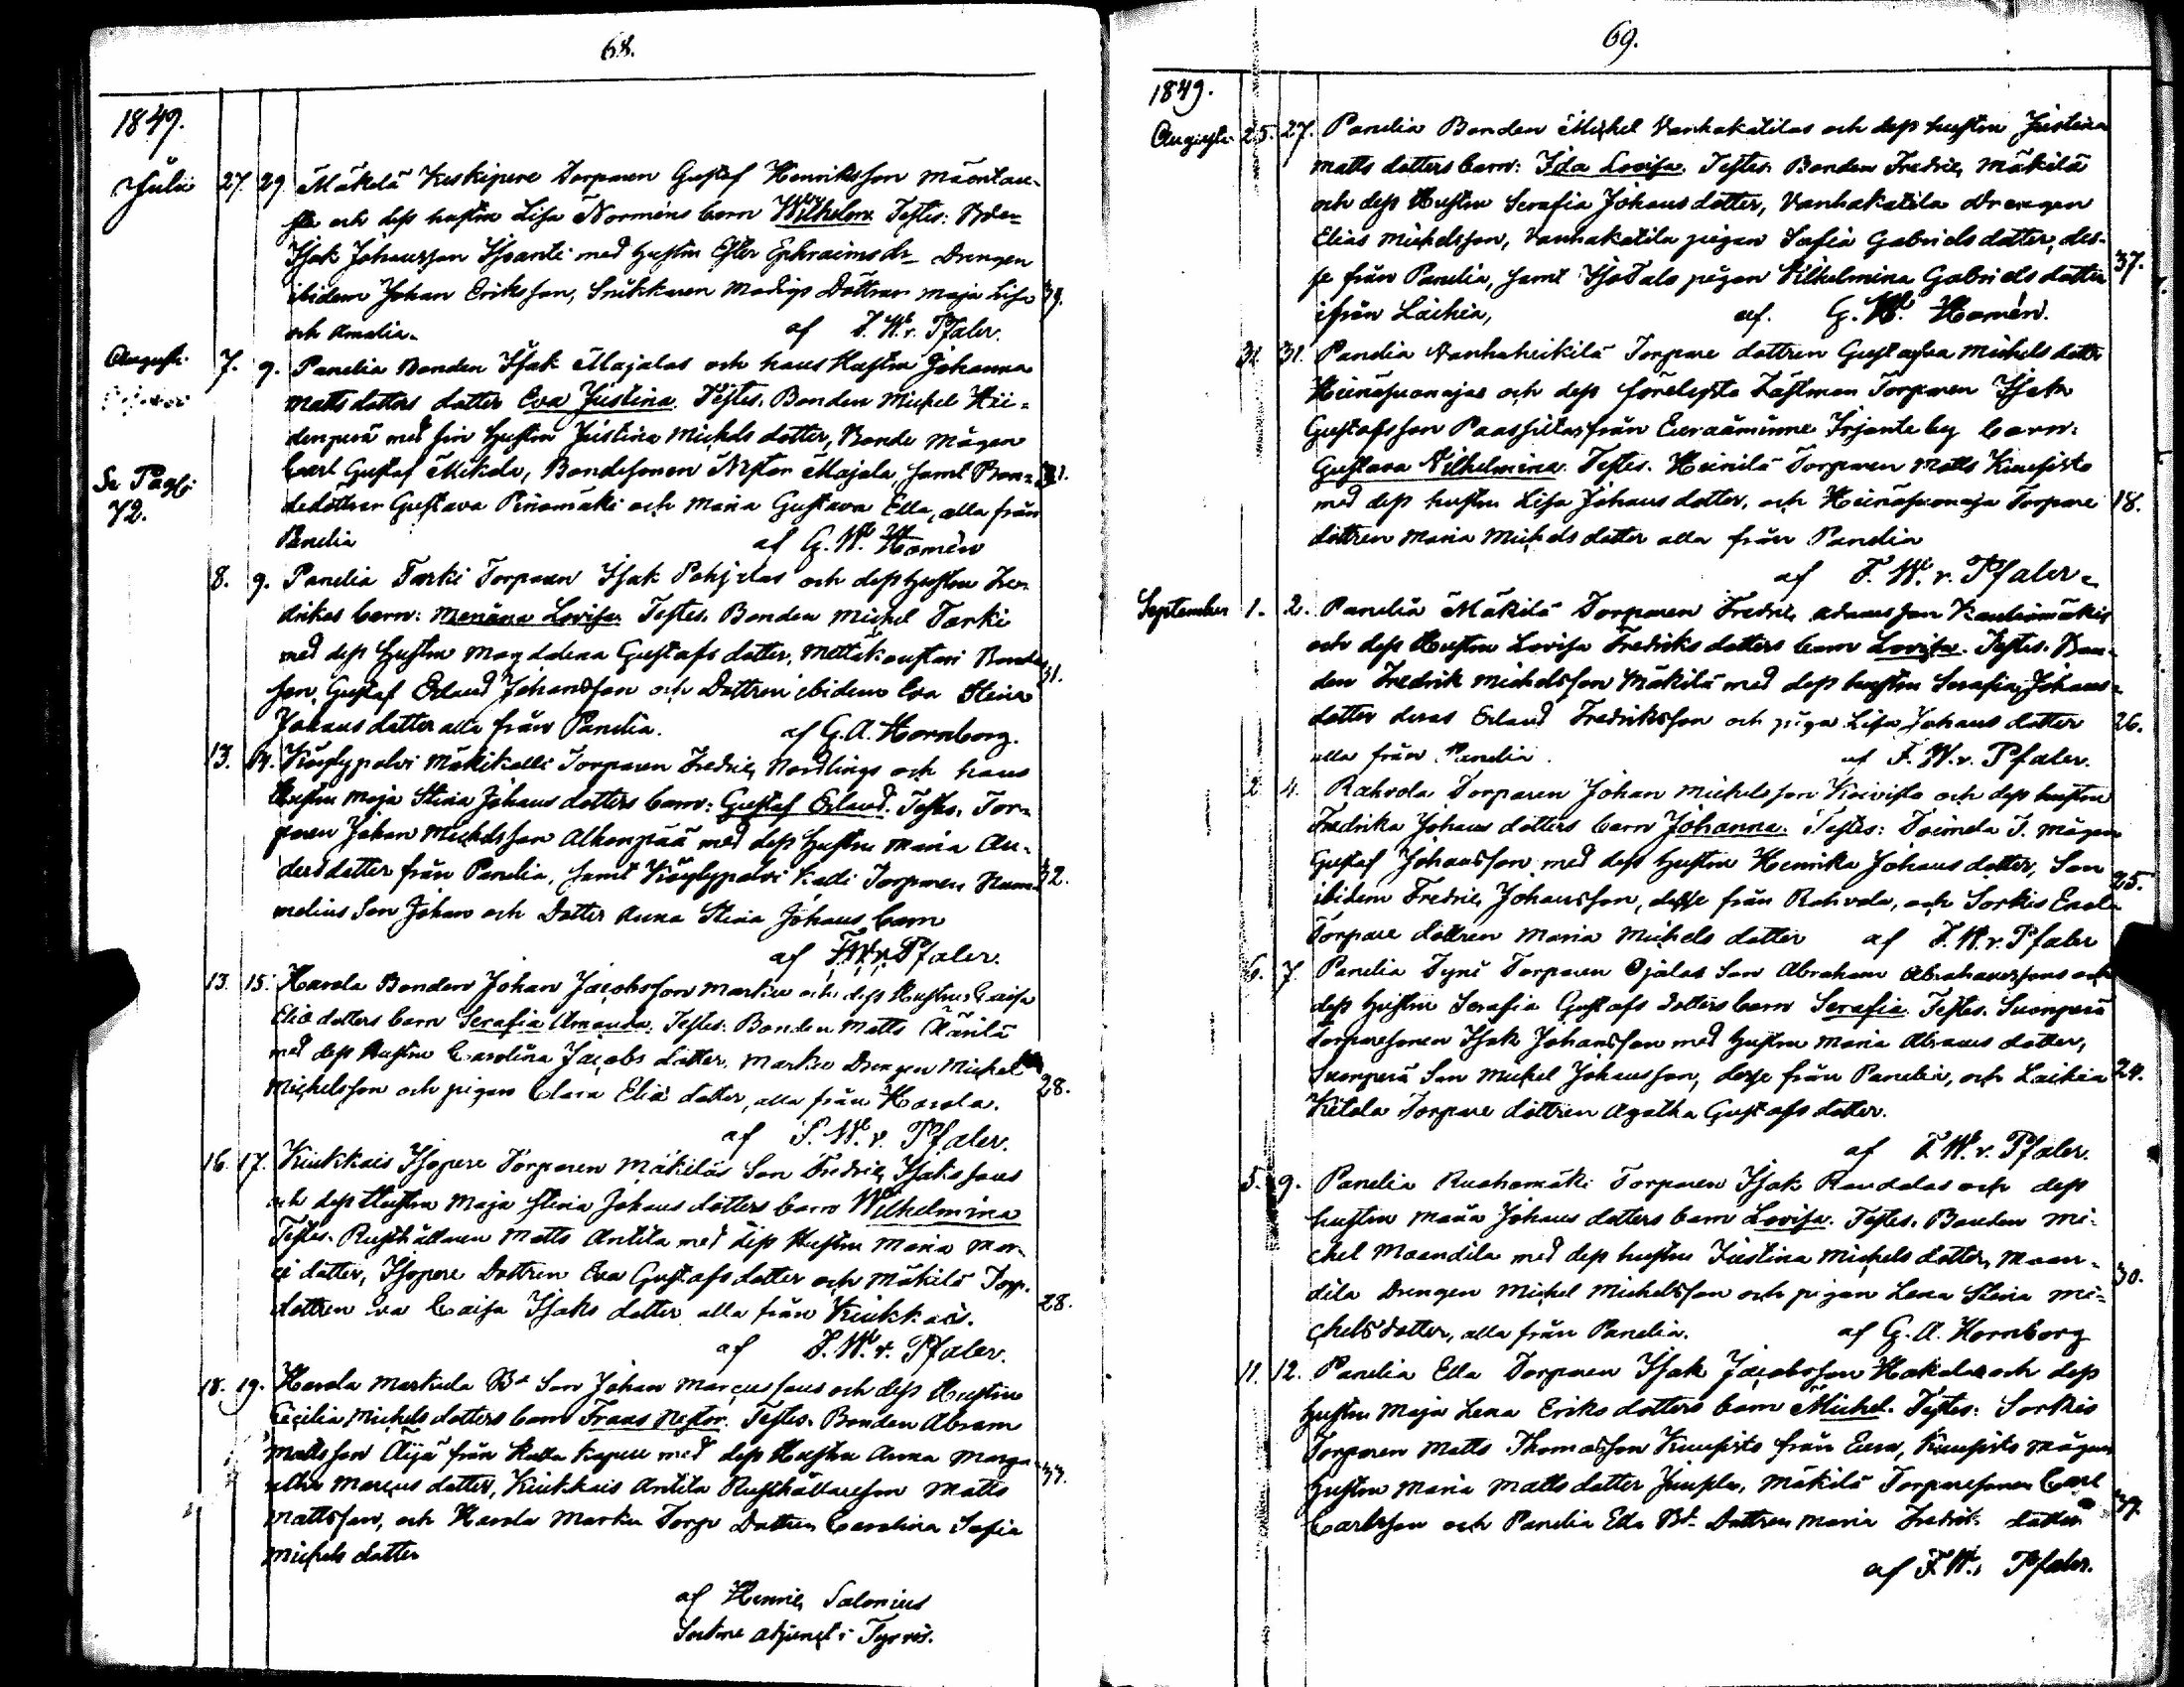 68.
1849.
Julii 27. 29. Mäkelä Keskipere Torparen Gustaf Henriksson
och dess hustru Lisa Norméns barn Wilhelm. Testes:
Isak Johansson Isoanti med hustru Ester Ephraims dr Drengen
ibidem Johan Eriksson, Snikkaren Döttrar Maja Lisa
och Amalia. af F. W. v. Pfaler.
August. 7. 9. Panelia Bonden Isak Majalas och hans Hustru Johanna
Matts dotters dotter Eva Justina. Testes. Bonden Michel Hii-
denperä med sin Hustru Justina Michels dotter, Bonde Mågen
Carl Gustaf Mikola, Bondesonen Nestor Majala, samt Bon-
dedöttrar Gustava Pinomäki och Maria Gustava Ella, alla från
Se Pag:
72.
Panelia af G. W. Homén
8. 9. Panelia Tarki Torparen Isak Pohjolas och dess hustru Fre-
drikas barn: Lovisa. Testes. Bonden Michel Tarki
med dess hustru Magdalena Gustafs dotter, Bonde 31.
son Gustaf Erland Johansson och Dottren ibidem Eva Stina
Johans dotter alla från Panelia. af G. A. Hornborg.
13. 14. Köylypolvi Mäkikalli Torparen Fredric Nordlings och hans
Hustru Maja Stina Johans dotters barn: Gustaf Erland. Testes. Tor-
paren Johan Michelsson Alhonpää med dess hustru Maria An-
dersdotter från Panelia, samt Köylypolvi Kalli Torparen Num- 32.
melins Son Johan och Dotter Anna Stina Johans barn
af F. W. v. Pfaler.
13. 15. Harola Bonden Johan Jacobsson Markus och dess Hustrus Caisa
Eliæ dotters barn Serafia Amanda. Testes: Bonden Matts
med dess Hustru Carolina Jacobs dotter. Markus Drengen Michel
Michelsson och pigan Clara Eliæ dotter, alla från Harola. 28.
af F. W. v. Pfaler.
16. 17. Kiukkais Isopere Torparen Mäkiläs Son Fredric Isakssons
och dess Hustru Maja Stina Johans dotters barn Wilhelmina
Testes. Rusthållaren Matts Anttila med dess Hustru Maria Mar-
ci dotter, Isopere Dottren Eva Gustafs dotter och Mäkilä Torp.
dottren Eva Caisa Isaks dotter alla från Kiukkais. 28.
af F. W. v. Pfaler.
18. 19. Harola Markula Bd Son Johan Marcussons och dess Hustru
Cecilia Michels dotters barn Frans Nestor. Testes. Bonden Abram
Mattsson Äijä från Kapell med dess Hustru Anna Marga-
retha Marcus dotter, Kiukkais Anttila Rusthållareson Matts 33.
Mattsson, och Harola Marku Torpr Dottren Carolina Sofia
Michels dotter
af Henric Salonius
Sockne adjunct i Tyrvis.
69.
1849.
Augusti 25. 27. Panelia Bonden Michel Vanhakatilas och dess hustru Justina
Matts dotters barn: Ida Lovisa. Testes. Bonden Fredric Mäkilä
och dess Hustru Serafia Johans dotter, Vanhakatila Drengen
Elias Michelsson, Vanhakatila pigan Sofia Gabriels dotter, des-
se från Panelia, samt Isotalo pigan Vilhelmina Gabriels dotter 37.
ifrån Laihia, af. G. W. Homén.
31. 31. Panelia Vanhaheikilä Torpare dottren Gustava Michels dotter
Heinäsuonojas och dess förelefsta Fästman Torparen Isak
Gustafsson från Euraåminne Irjante by barn:
Gustava Vilhelmina. Testes. Heinilä Torparen Matts Kuusisto
med dess hustru Lisa Johans dotter, och Heinäsuonoja Torpare 18.
dottren Maria Michels dotter alla från Panelia
af F. W. v. Pfaler.
September 1. 2. Panelia Mäkilä Torparen Fredric Adamsson
och dess Hustru Lovisa Fredriks dotters barn Lovisa. Testes. Bon-
den Fredrik Michelsson Mäkilä med dess hustru Serafia Johans-
dotter deras Erland Fredriksson och piga Lisa Johans dotter 26.
alla från Panelia. af F. W. v. Pfaler.
2 4. Rahvola Torparen Johan Michelsson Koivisto och dess hustru
Fredrika Johans dotters barn Johanna. Testes: Toimela T. Mågen
Gustaf Johansson med dess hustru Henrika Johans dotter, Son 25.
ibidem Fredric Johansson, desse från Rahvola, och Sorkis Enola
Torpare dottren Maria Michels dotter af F. W. v. Pfaler
6. 7. Panelia Tyni Torparen Ojalas Son Abraham Abrahamssons och
dess hustru Serafia Gustafs dotters barn Serafia. Testes. Suonperä
Torparesonen Isak Johansson med hustru Maria Abrams dotter,
Suonperä Son Michel Johansson, desse från Panelia, och Laihia 24.
Kitola Torpare dottren Agatha Gustafs dotter.
af F. W. v. Pfaler.
5. 9. Panelia Ruohomäki Torparen Isak Randalas och dess
hustru Maria Johans dotters barn Lovisa. Testes. Bonden Mi-
chel Maandila med dess hustru Justina Michels dotter, Maan-
dila Drengen Michel Michelsson och pigan Lena Stina Mi- 30.
chelsdotter, alla från Panelia. af G. A. Hornborg
11. 12. Panelia Ella Torparen Isak Jacobsson Hakala och dess
hustru Maja Lena Eriks dotters barn Michel. Testes: Sorkis
Torparen Matts Thomasson Kuusisto från Eura, Kuusisto mågens
hustru Maria Matts dotter, Mäkilä Torparesonen Carl
Carlsson och Panelia Ella Bd Dottren Maria Fredric dotter 39.
af F. W. v. Pfaler.